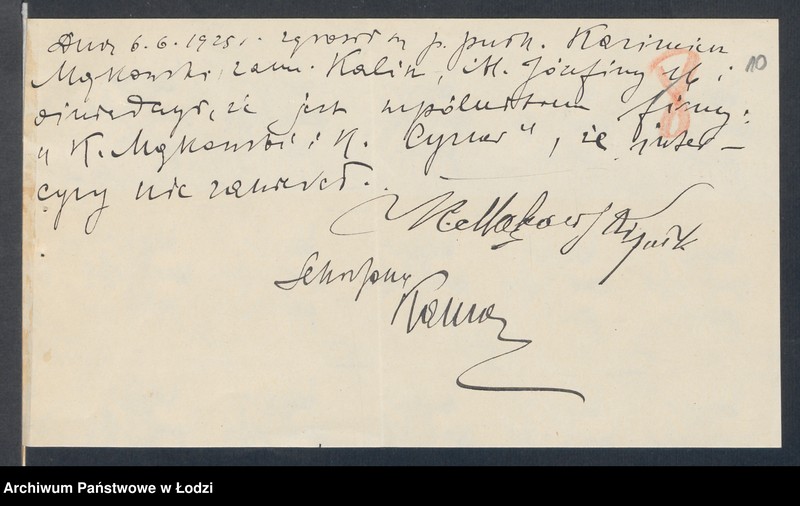 Dnia 6.6.1925 r. zgłosił się p. pułk. Kazimierz
Mąkowski, zam. Kalisz, ul. Józefiny 16 i
oświadczył, że jest wspólnikiem firmy:
"K. Mąkowski i K. Cyner", że inter-
cyzy nie zawierał.
K. Mąkowski pułk
Sekretarz
10
Archiwum Państwowe w Łodzi